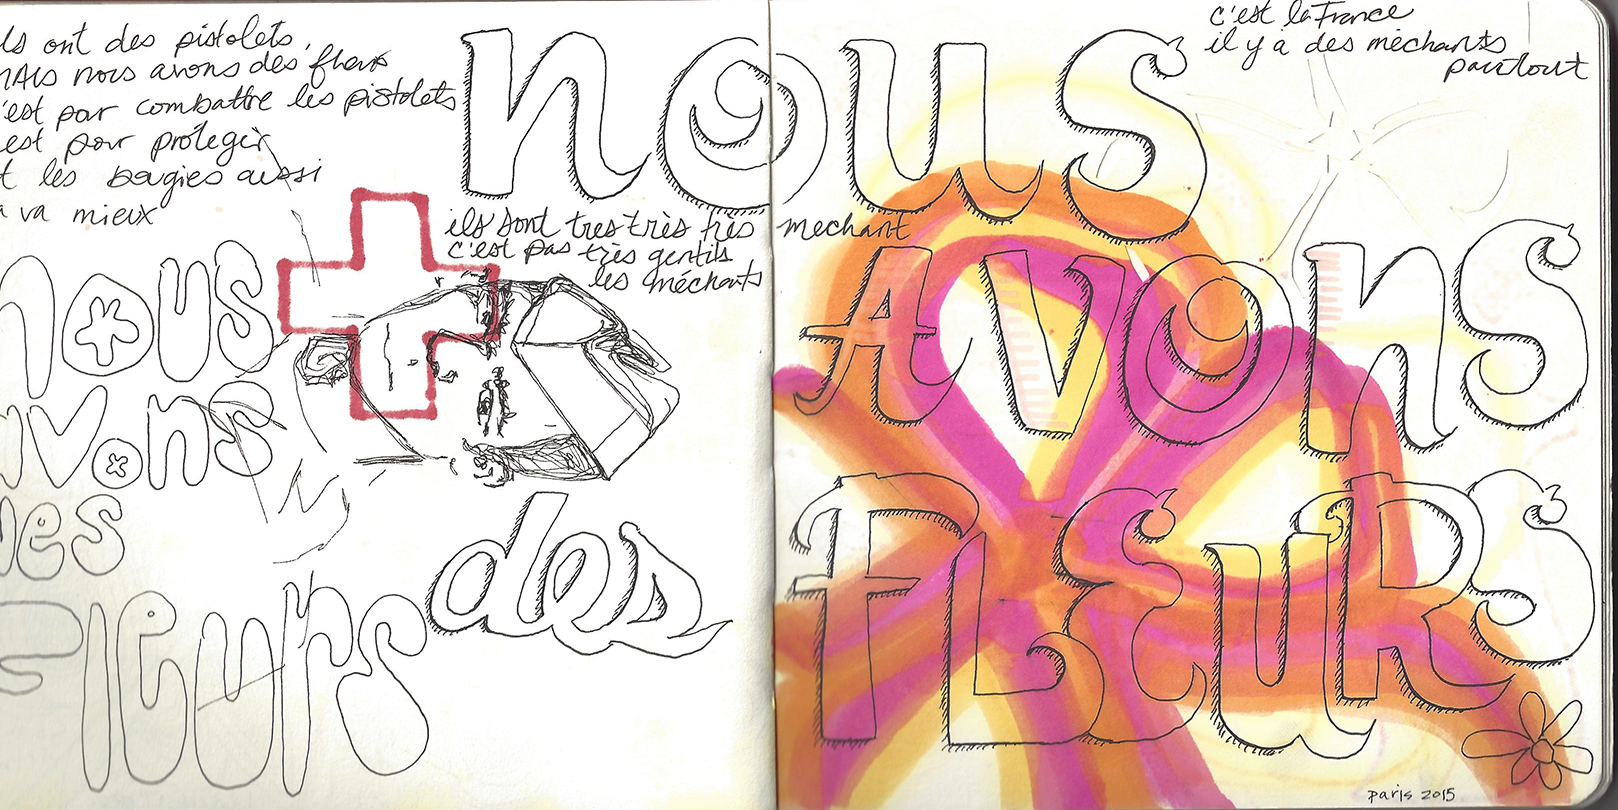 ls ont des pistolets,
MAIS nous avons des fleurs
'est pour combattre les pistolets
'est pour protéger
t les bougies aussi
a va mieux
c'est la France
il y a des méchants
partout
nous
ils sont tres très très mechant
c'est pas très gentils
les méchants
AVons
nous
Avons
des
Fleurs
des
FLEURS
paris 2015